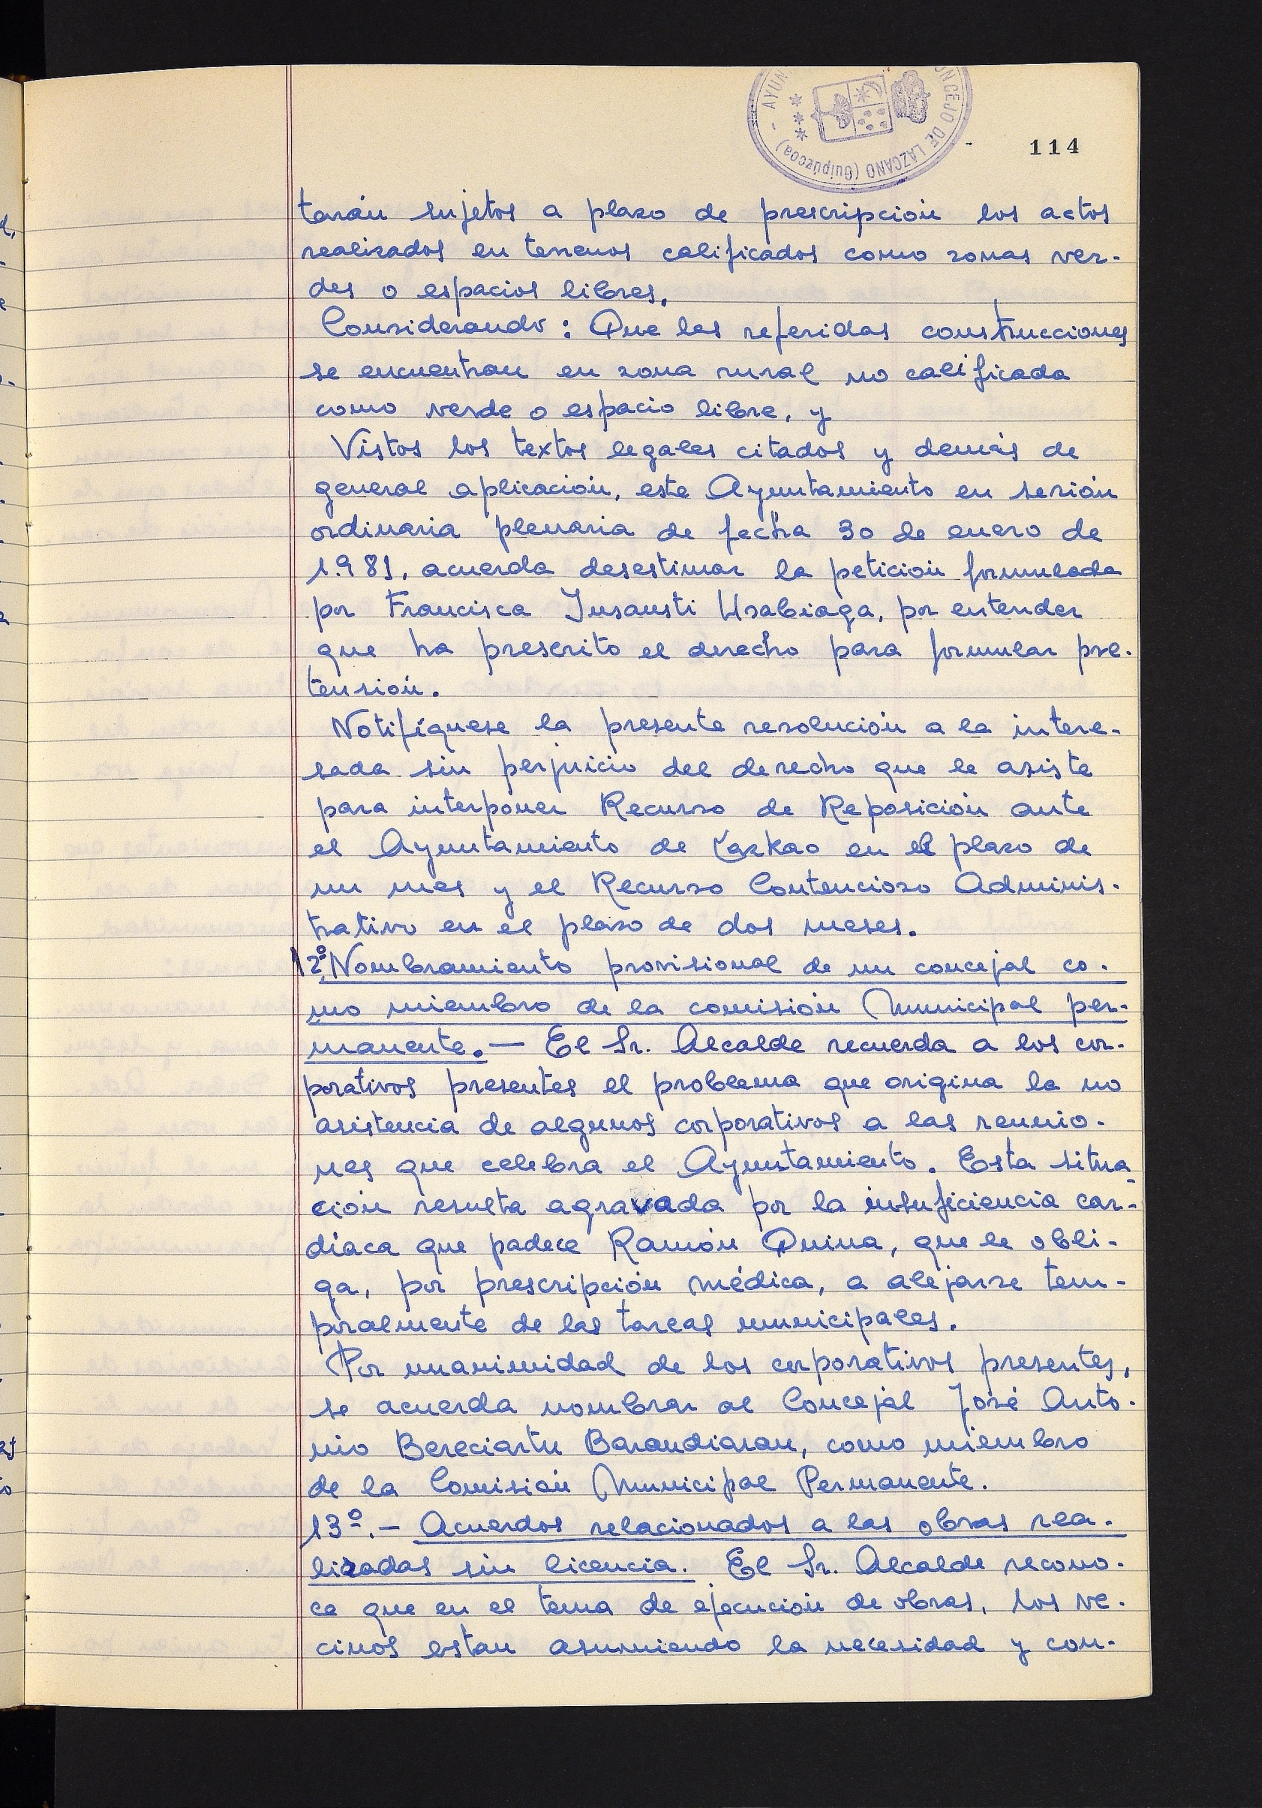 AYUN
ONCEJO DE LAZCANO (Guipúzcoa)
114
tarán sujetos a plazo de prescripción los actos
realizados en terrenos calificados como zonas ver-
des o espacios libres.
Considerando: Que las referidas construcciones
se encuentran en zona rural no calificada
como verde o espacio libre, y
Vistos los textos legales citados y demás de
general aplicación, este Ayuntamiento en sesión
ordinaria plenaria de fecha 30 de enero de
1.981, acuerda desestimar la petición formulada
por Francisca Insausti Usabiaga, por entender
que ha prescrito el derecho para formular pre-
tensión.
Notifíquese la presente resolución a la intere-
sada sin perjuicio del derecho que le asiste
para interponer Recurso de Reposición ante
el Ayuntamiento de Lazkao en el plazo de
un mes y el Recurso Contencioso Adminis-
trativo en el plazo de dos meses.
12º. Nombramiento provisional de un concejal co-
mo miembro de la comisión Municipal per-
manente.— El Sr. Alcalde recuerda a los cor-
porativos presentes el problema que origina la no
asistencia de algunos corporativos a las reunio-
nes que celebra el Ayuntamiento. Esta situa-
ción resulta agravada por la insuficiencia car-
díaca que padece Ramón Quina, que le obli-
ga, por prescripción médica, a alejarse tem-
poralmente de las tareas municipales.
Por unanimidad de los corporativos presentes,
se acuerda nombrar al Concejal José Anto-
nio Bereciartu Barandiaran, como miembro
de la Comisión Municipal Permanente.
13º.— Acuerdos relacionados a las obras rea-
lizadas sin licencia. El Sr. Alcalde recono-
ce que en el tema de ejecución de obras, los ve-
cinos estan asumiendo la necesidad y con-